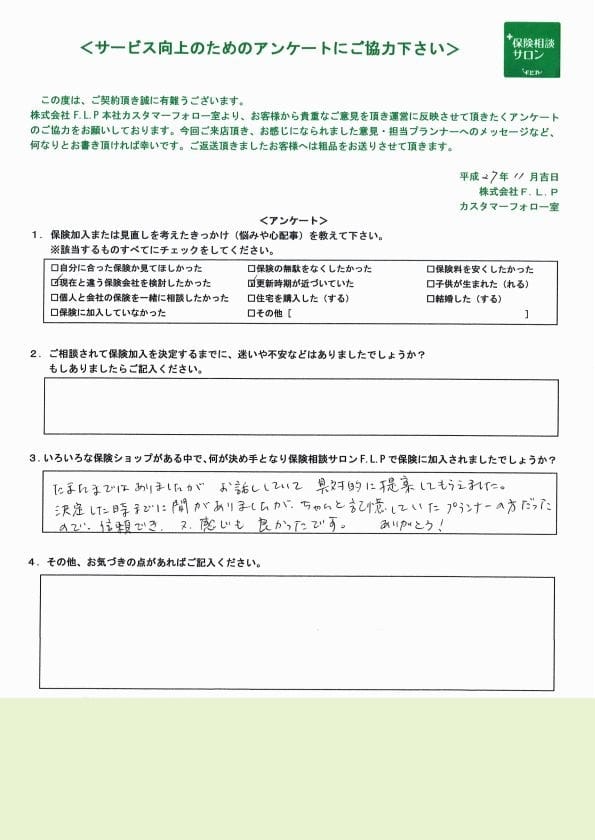 <サービス向上のためのアンケートにご協力下さい>
保険相談
サロン
F.L.P
この度は、ご契約頂き誠に有難うございます。
株式会社F.L.P本社カスタマーフォロー室より、お客様から貴重なご意見を頂き運営に反映させて頂きたくアンケート
のご協力をお願いしております。今回ご来店頂き、お感じになられました意見・担当プランナーへのメッセージなど、
何なりとお書き頂ければ幸いです。ご返送頂きましたお客様へは粗品をお送りさせて頂きます。
平成27年11月吉日
株式会社F.L.P
カスタマーフォロー室
<アンケート>
1．保険加入または見直しを考えたきっかけ（悩みや心配事）を教えて下さい。
※該当するものすべてにチェックをしてください。
□自分に合った保険か見てほしかった □保険の無駄をなくしたかった □保険料を安くしたかった
☑現在と違う保険会社を検討したかった ☑更新時期が近づいていた □子供が生まれた（れる）
□個人と会社の保険を一緒に相談したかった □住宅を購入した（する） □結婚した（する）
□保険に加入していなかった □その他［ ］
2．ご相談されて保険加入を決定するまでに、迷いや不安などはありましたでしょうか？
もしありましたらご記入ください。
3．いろいろな保険ショップがある中で、何が決め手となり保険相談サロンF.L.Pで保険に加入されましたでしょうか？
たまたまではありましたが お話ししていて 具体的に提案してもらえました。
決定した時までに間がありましたが、ちゃんと記憶していたプランナーの方だった
ので、信頼でき、又、感じも良かったです。 ありがとう！
4．その他、お気づきの点があればご記入ください。